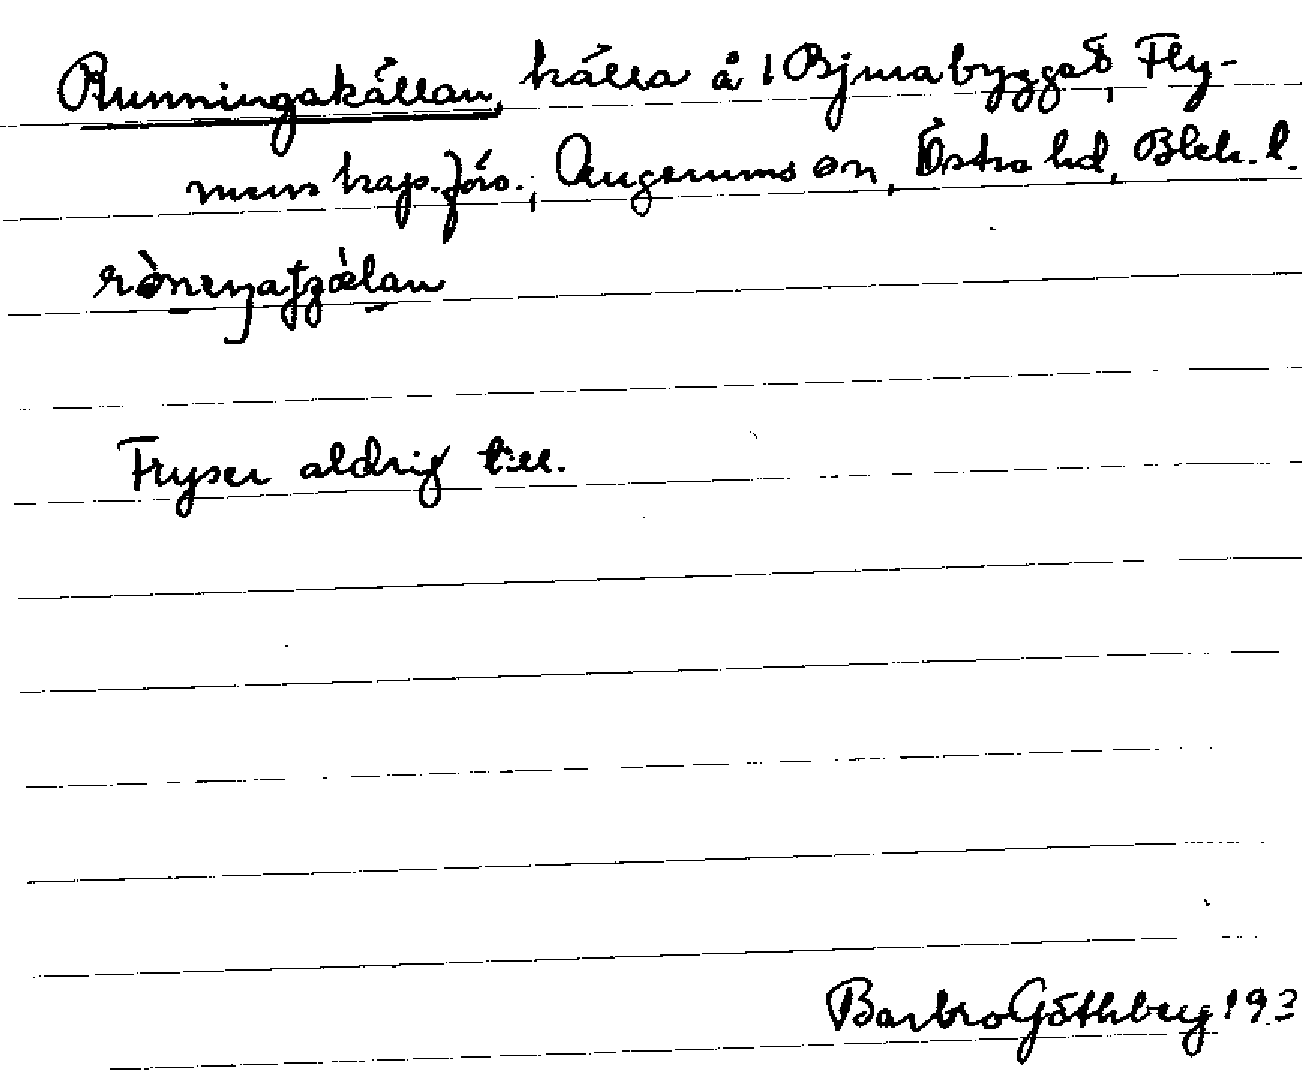 Runningakällan, källa å 1 Bjurabygget, Fly-
mens kap.förs., Augerums sn, Östra hd, Blek. l.
Fryser aldrig till.
Barbro Göthberg 193